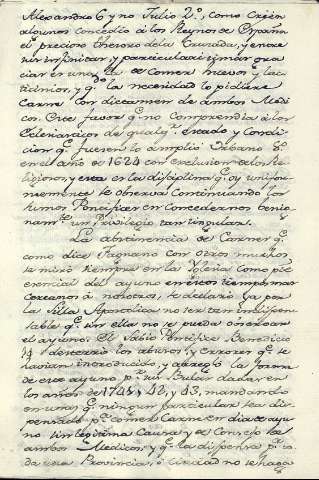 Alexandro 6 y no Julio 2º, como creien
algunos concedio á los Reynos de España
el precioso thesoro de la Cruzada, y entre
sus infinitas, y particularisimas gra
cias en una de comer huevos y lac
ticinios, y q.e la necesidad lo pidiere
Carne con dictamen de ambos Medi
cos. Este favor q.e no comprendia á los
Eclesiasticos de qualq.r estado y Condi
cion q.e fuesen lo amplió Urbano 8º
en el año de 1624 con exclusion de los Re
ligiosos, y esta es la disciplina q.e oy unifor
memente se observa Continuando los
sumos Pontifices en concedernos benig
nam.te un Privilegio tan singular.
La abstinencia de Carnes q.e
como dice Pagnano con otros muchos
se miró siempre en la Yglesia como
esencial del ayuno en estos tiempos mas
cercanos á nosotros, se declaró ya por
la Silla Apostolica no ser tan indispen
sable q.e sin ella no se pueda observar
el ayuno. El Sabio Pontifice Benedicto
14 desterrar los abusos, y errores q.e se
havian introducido, y arregló la forma
de este ayuno p.r sus Bulas dadas en
los años de 1741, 42, y 43, mandando
en una q.e ningun particular sea dis
pensado p.a comer Carne en dia de ayu
no sin legitima Causa y de Consejo de
ambos Medicos, y q.e la dispensa p.a to
da una Provincia, ó ciudad no se haga